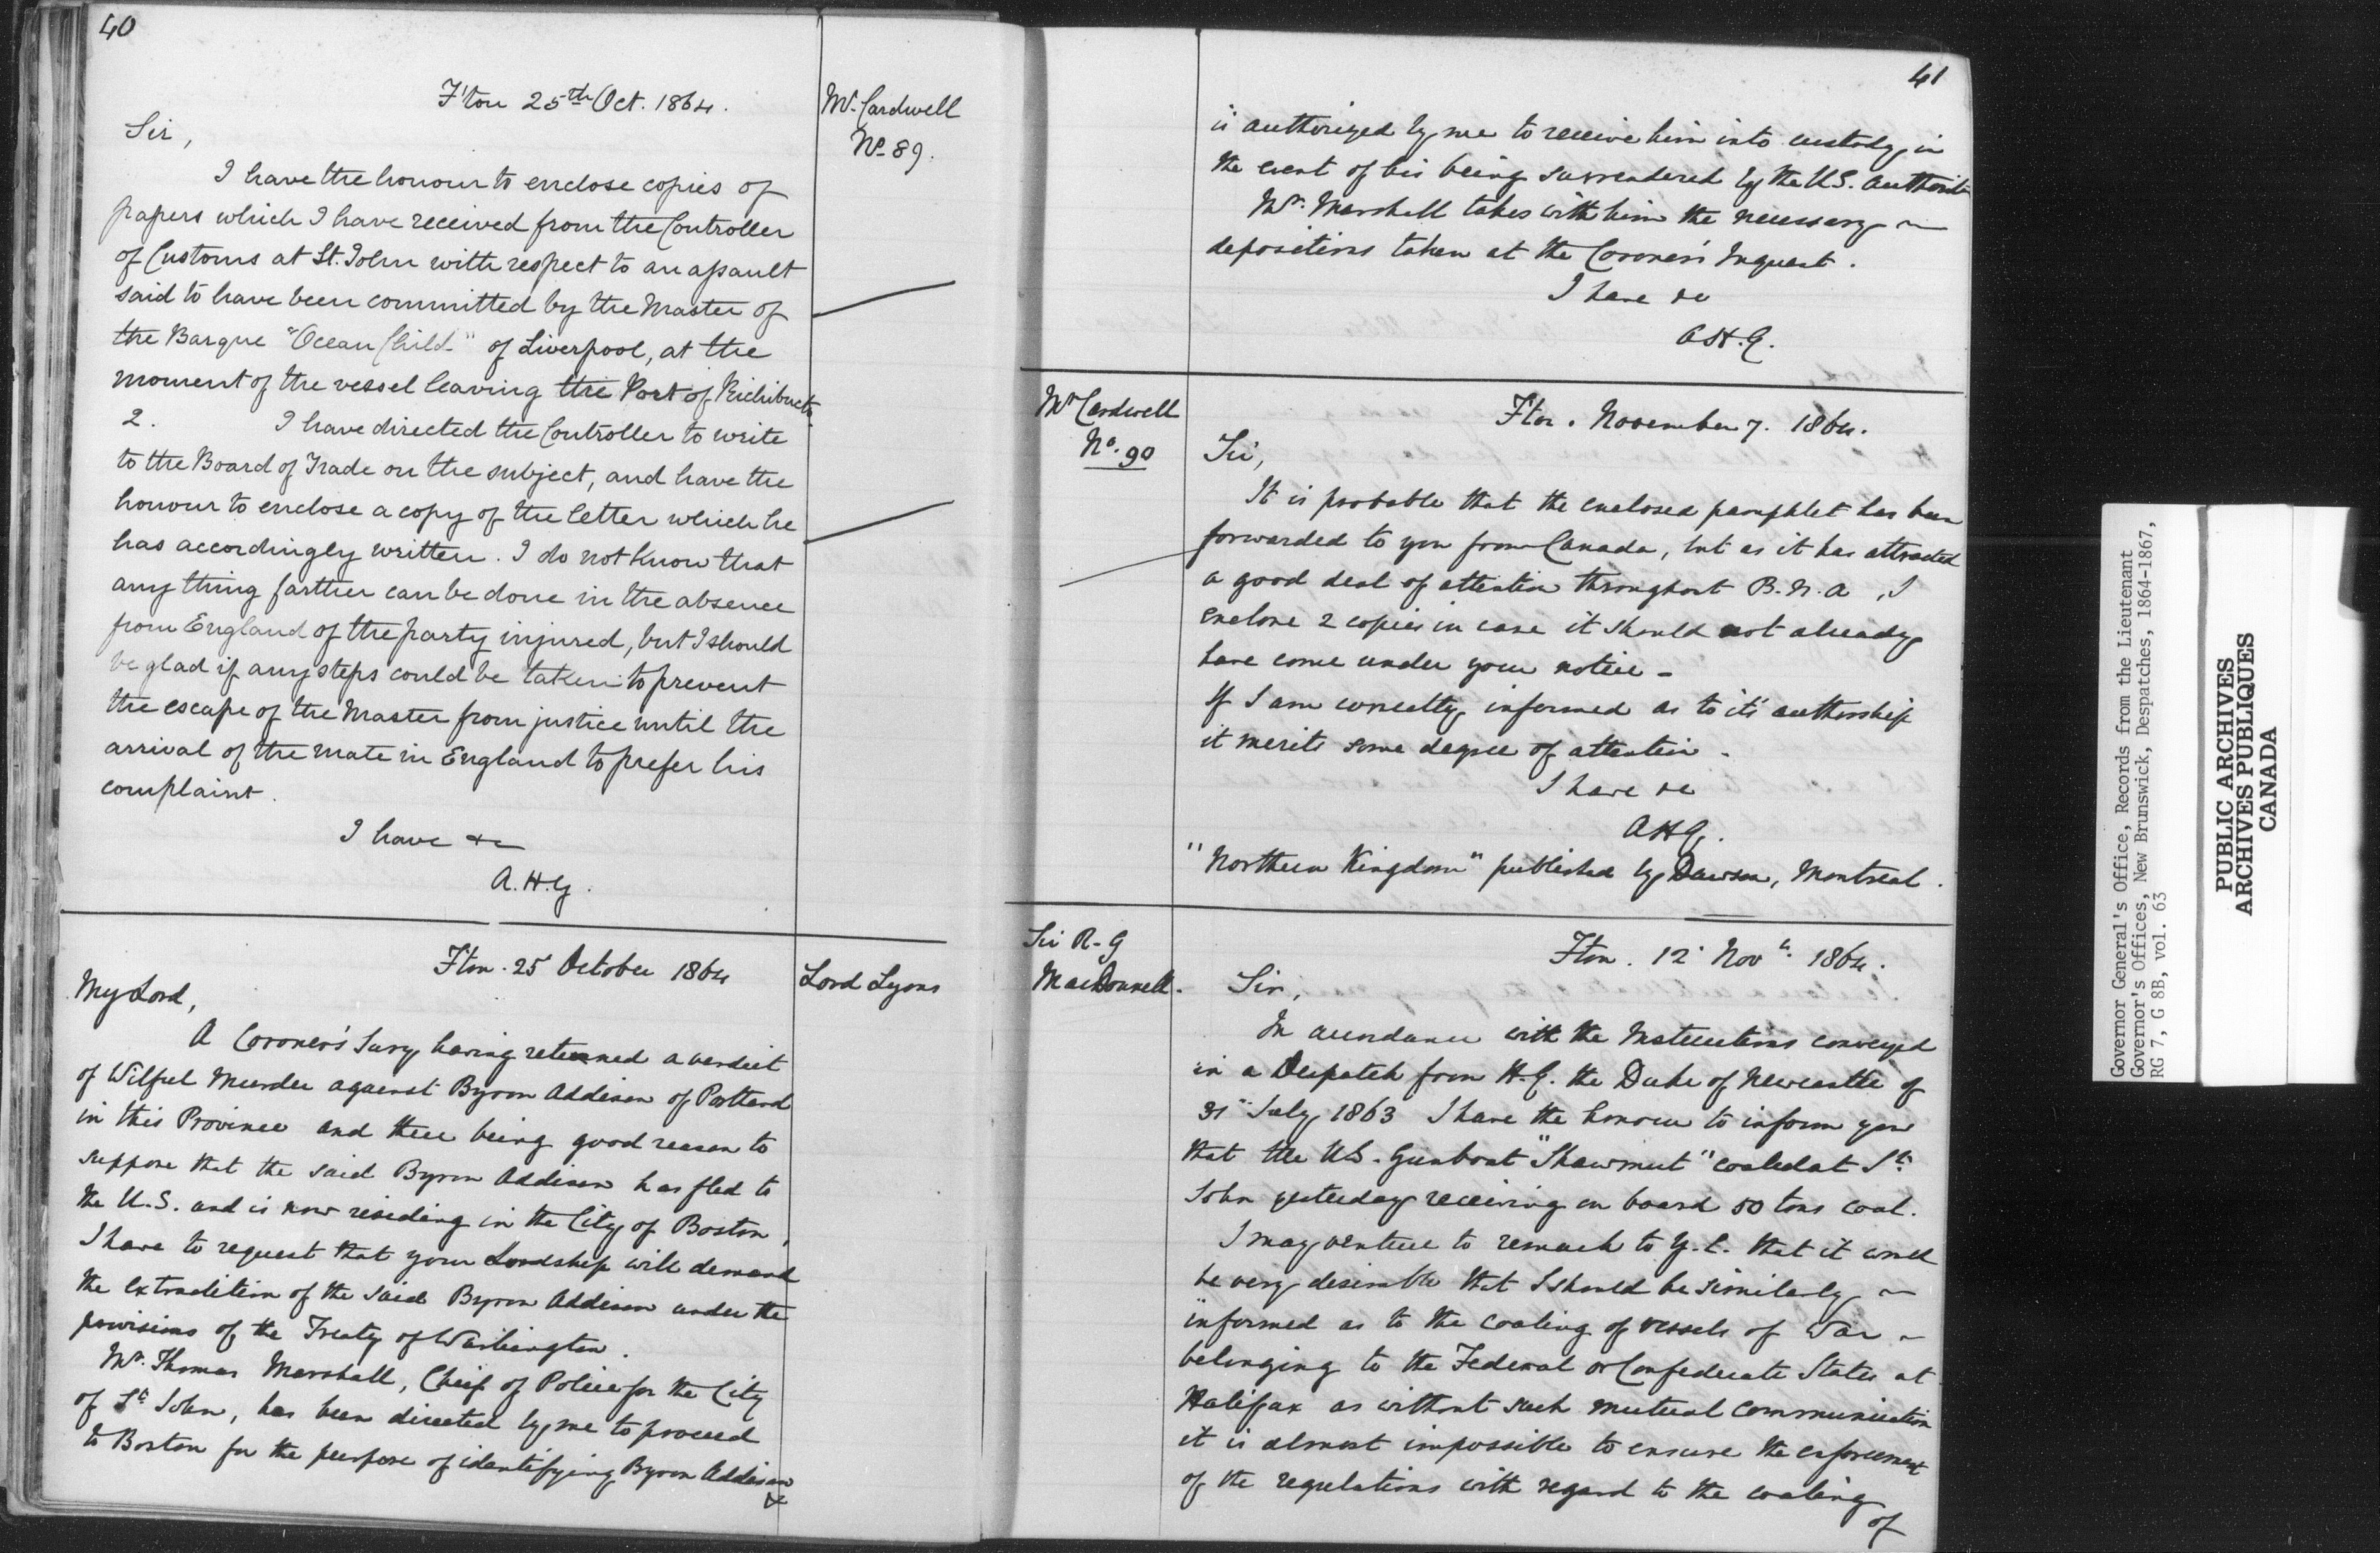 40
F'ton 25th Oct. 1864.
Mr. Cardwell
No. 89.
Sir,
I have the honour to enclose copies of
papers which I have received from the Controller
of Customs at St. John with respect to an assault
said to have been committed by the Master of
the Barque "Ocean Child" of Liverpool, at the
moment of the vessel leaving the Port of Richibucto.
2. I have directed the Controller to write
to the Board of Trade on the subject, and have the
honour to enclose a copy of the letter which he
has accordingly written. I do not know that
any thing farther can be done in the absence
from England of the party injured, but I should
be glad if any steps could be taken to prevent
the escape of the Master from justice until the
arrival of the mate in England to prefer his
complaint.
I have &c
A.H.G.
Fton. 25 October 1864
Lord Lyons
My Lord,
A Coroner's Jury having returned a verdict
of Wilful Murder against Byron Addison of Portland
in this Province and there being good reason to
suppose that the said Byron Addison has fled to
the U.S. and is now residing in the City of Boston,
I have to request that your Lordship will demand
the extradition of the said Byron Addison under the
provisions of the Treaty of Washington.
Mr. Thomas Marshall, Chief of Police for the City
of St. John, has been directed by me to proceed
to Boston for the purpose of identifying Byron Addison
&
41
is authorized by me to receive him into custody in
the event of his being surrendered by the U.S. authorities
Mr. Marshall takes with him the necessary
depositions taken at the Coroner's Inquest.
I have &c
A.H.G.
Mr Cardwell
No. 90
Fton. November 7. 1864.
Sir,
It is probable that the enclosed pamphlet has been
forwarded to you from Canada, but as it has attracted
a good deal of attention throughout B.N.A, I
enclose 2 copies in case it should not already
have come under your notice -
If I am correctly informed as to it's authorship
it merits some degree of attention -
I have &c
AHG.
"Northern Kingdom" published by Dawson, Montreal.
Sir R. G
MacDonnell.
Fton. 12 Novr. 1864.
Sir,
In accordance with the Instructions conveyed
in a Despatch from H.G. the Duke of Newcastle of
31st July 1863 I have the honour to inform you
that the U.S. Gunboat "Shawmut" coaled at St.
John yesterday receiving on board 50 tons coal.
I may venture to remark to Y.E. that it would
be very desirable that I should be similarly
informed as to the coaling of vessels of War
belonging to the Federal or Confederate States at
Halifax as without such mutual communication
it is almost impossible to ensure the enforcement
of the regulations with regard to the coaling
of
Governor General's Office, Records from the Lieutenant
Governor's Offices, New Brunswick, Despatches, 1864-1867,
RG 7, G 8B, vol. 63
PUBLIC ARCHIVES
ARCHIVES PUBLIQUES
CANADA